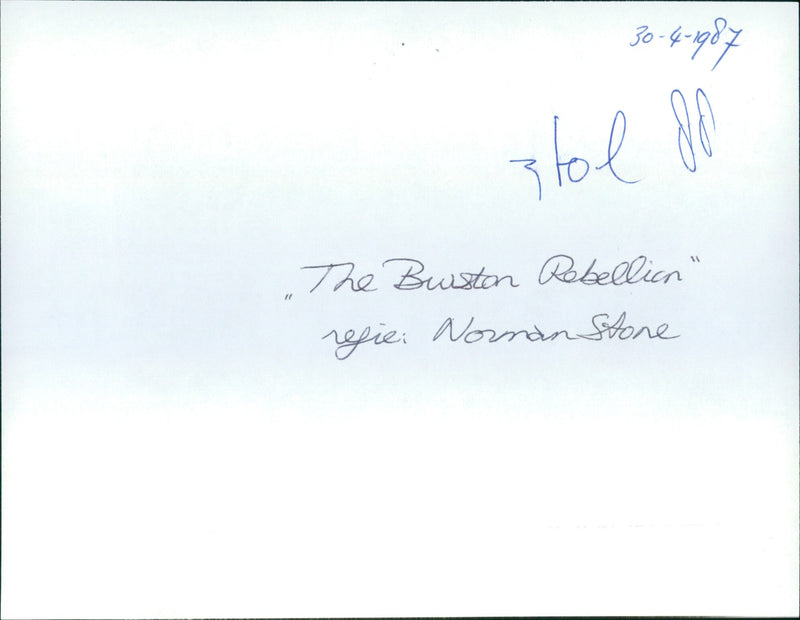 30-4-1987
„The Burston Rebellion"
regie: Norman Stone